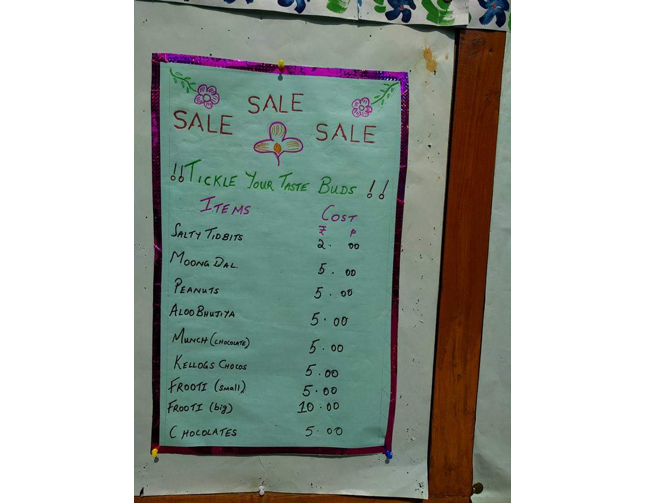 SALE
SALE SALE
!! TICKLE YOUR TASTE BUDS !!
ITEMS COST
₹ P
SALTY TIDBITS 2.00
MOONG DAL 5.00
PEANUTS 5.00
ALOO BHUJIYA 5.00
MUNCH (CHOCOLATE) 5.00
KELLOGS CHOCOS 5.00
FROOTI (small) 5.00
FROOTI (big) 10.00
CHOCOLATES 5.00